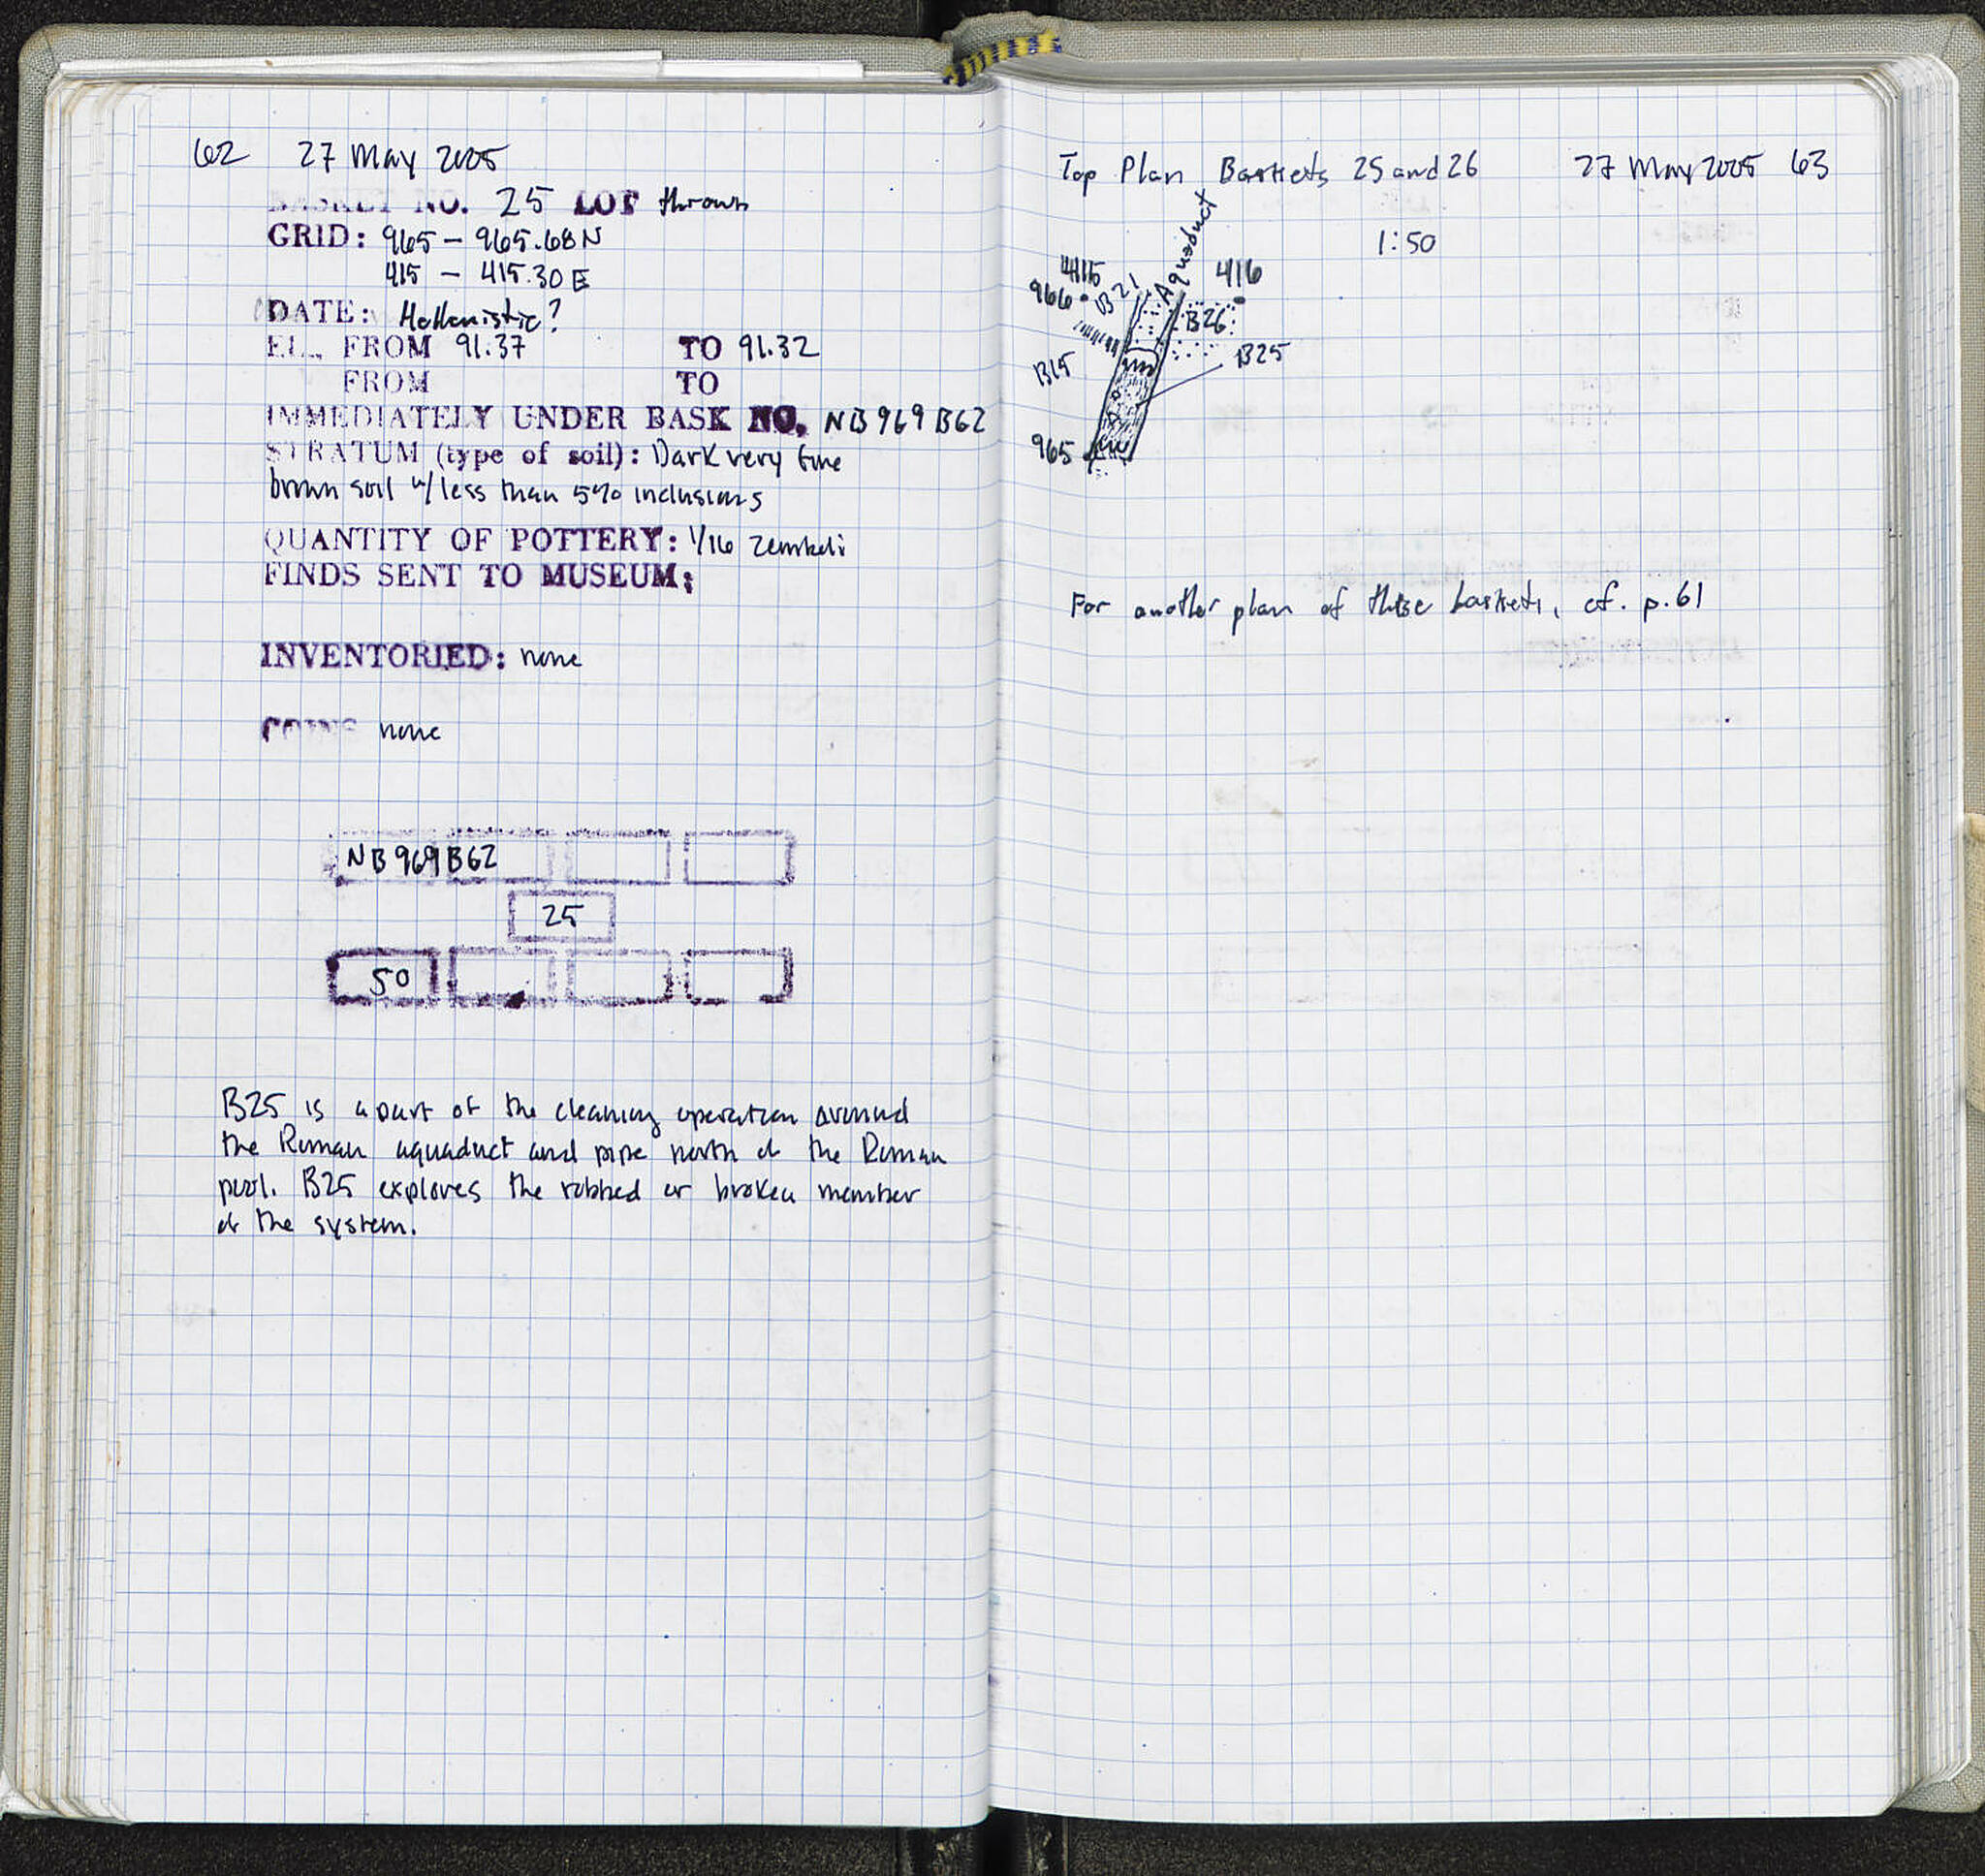 62 27 May 2005
BASKET NO. 25 LOT thrown
GRID: 965 – 965.68 N
415 – 415.30 E
DATE: Hellenistic?
EL. FROM 91.37 TO 91.32
FROM TO
IMMEDIATELY UNDER BASK NO. NB 969 B62
STRATUM (type of soil): Dark very fine
brown soil w/ less than 5% inclusions
QUANTITY OF POTTERY: 1/16 zembeli
FINDS SENT TO MUSEUM:
INVENTORIED: none
COINS none
NB 969 B62
25
50
B25 is a part of the cleaning operation around
the Roman aquaduct and pipe north of the Roman
pool. B25 explores the robbed or broken member
of the system.
Top Plan Baskets 25 and 26 27 May 2005 63
1:50
Aquaduct
415
416
966
B21
B26
B15
B25
965
For another plan of these baskets, cf. p. 61